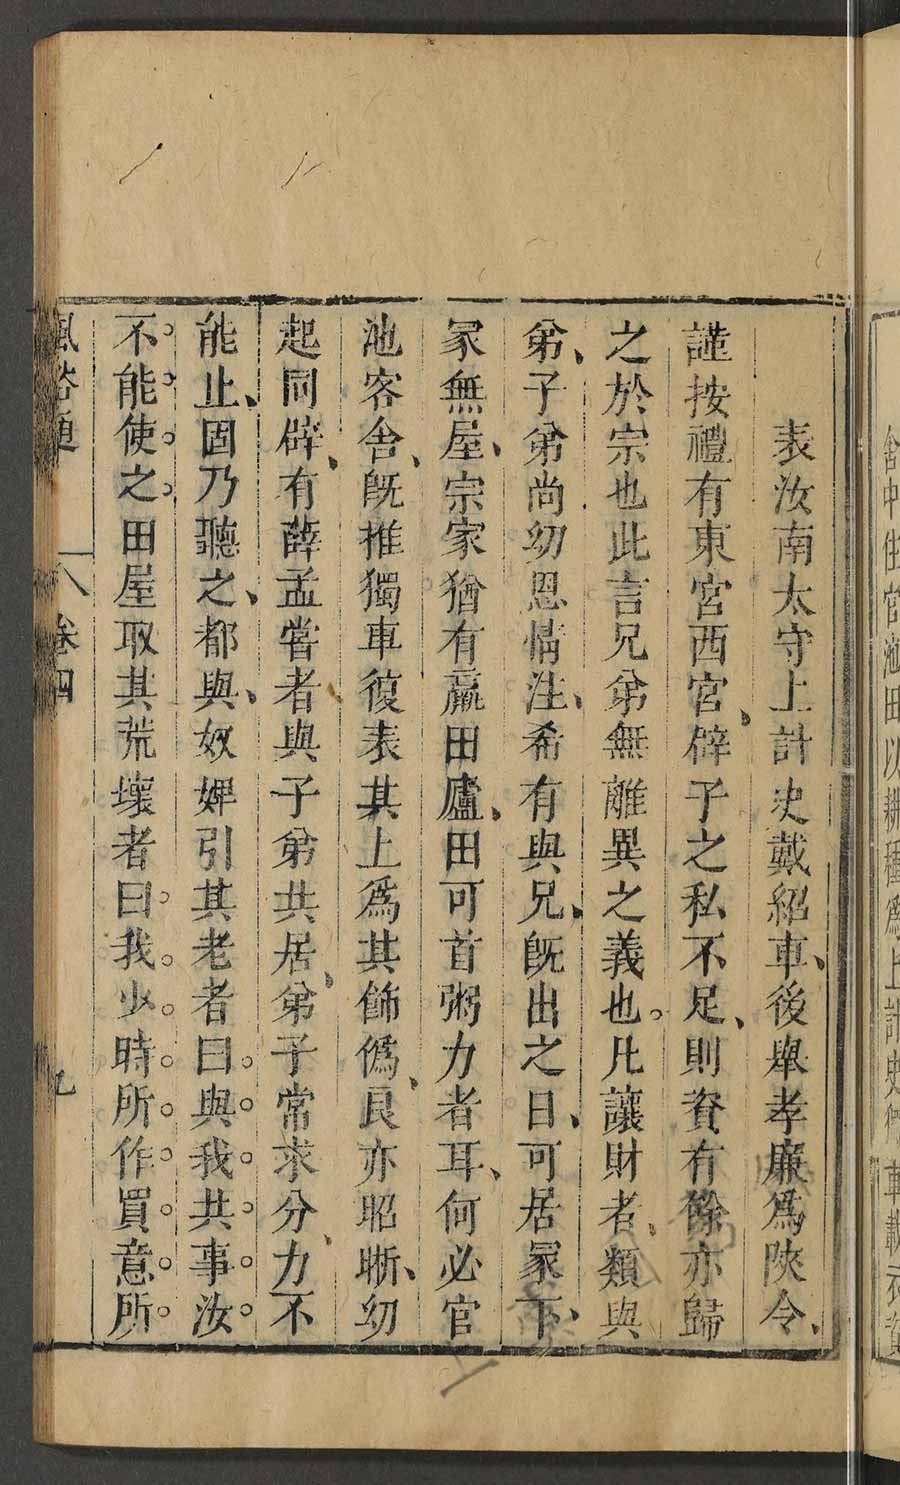 舍中住官池田以耕種為上計史獨車載衣資
表汝南太守上計史戴紹車、後舉孝廉爲陜令、
謹按禮有東宮西宮、辟子之私不足、則資有餘亦歸
之於宗也此言兄弟無離異之義也。凡讓財者、類與
弟、子弟尚幼恩情注、希有與兄、旣出之日、可居冢下、
冢無屋、宗家猶有羸田廬、田可首粥力者耳、何必官
池客舍、旣推獨車復表其上爲其飾僞、良亦昭晰、幼
起同辟、有薛孟嘗者與子弟共居、弟子常求分、力不
能止、固乃聽之、都與、奴婢引其老者曰。與。我。共。事。汝。
不。能。使。之。田屋取其荒壞者曰。我。少。時。所。作。買。意。所。
風俗通 卷四 九